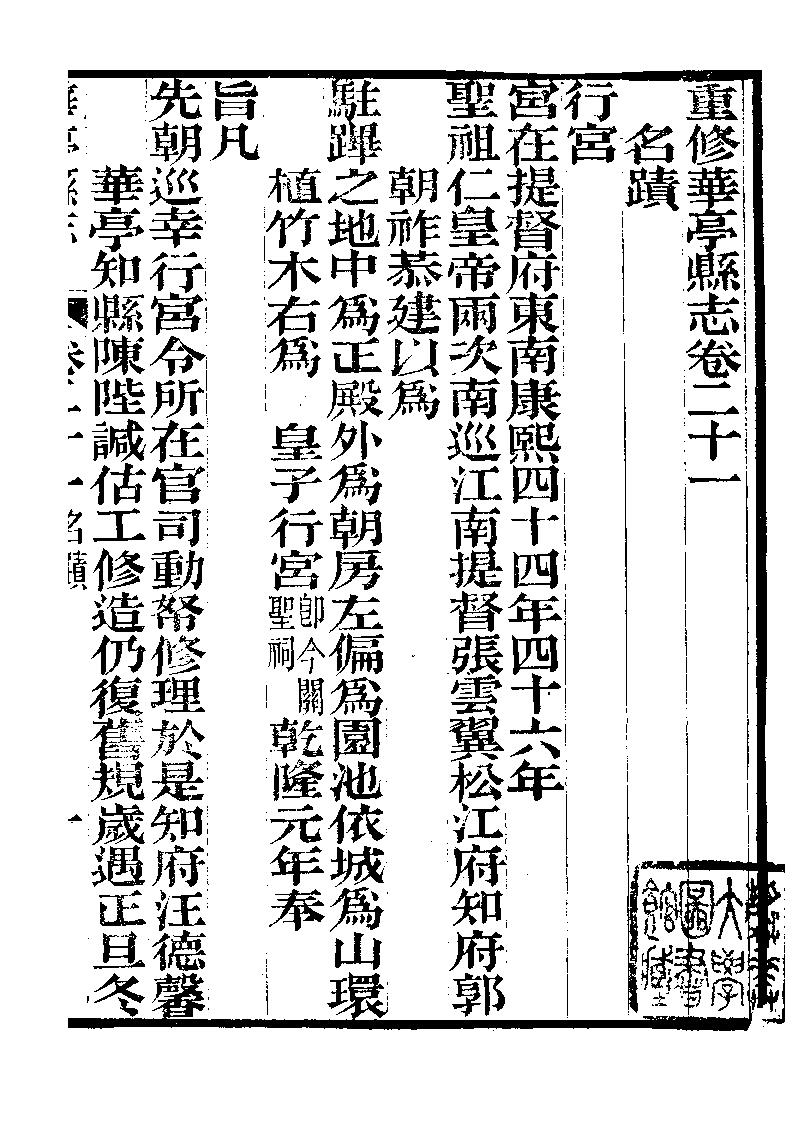 重修華亭縣志卷二十一
名蹟
行宮
宮在提督府東南康熙四十四年四十六年
聖祖仁皇帝兩次南巡江南提督張雲翼松江府知府郭
朝祚恭建以爲
駐蹕之地中爲正殿外爲朝房左偏爲園池依城爲山環
植竹木右爲 皇子行宮卽今關聖祠乾隆元年奉
旨凡
先朝巡幸行宮令所在官司動帑修理於是知府汪德馨
華亭知縣陳陛諴估工修造仍復舊規歲遇正旦冬
華亭縣志 卷二十一名蹟 一
大學圖書